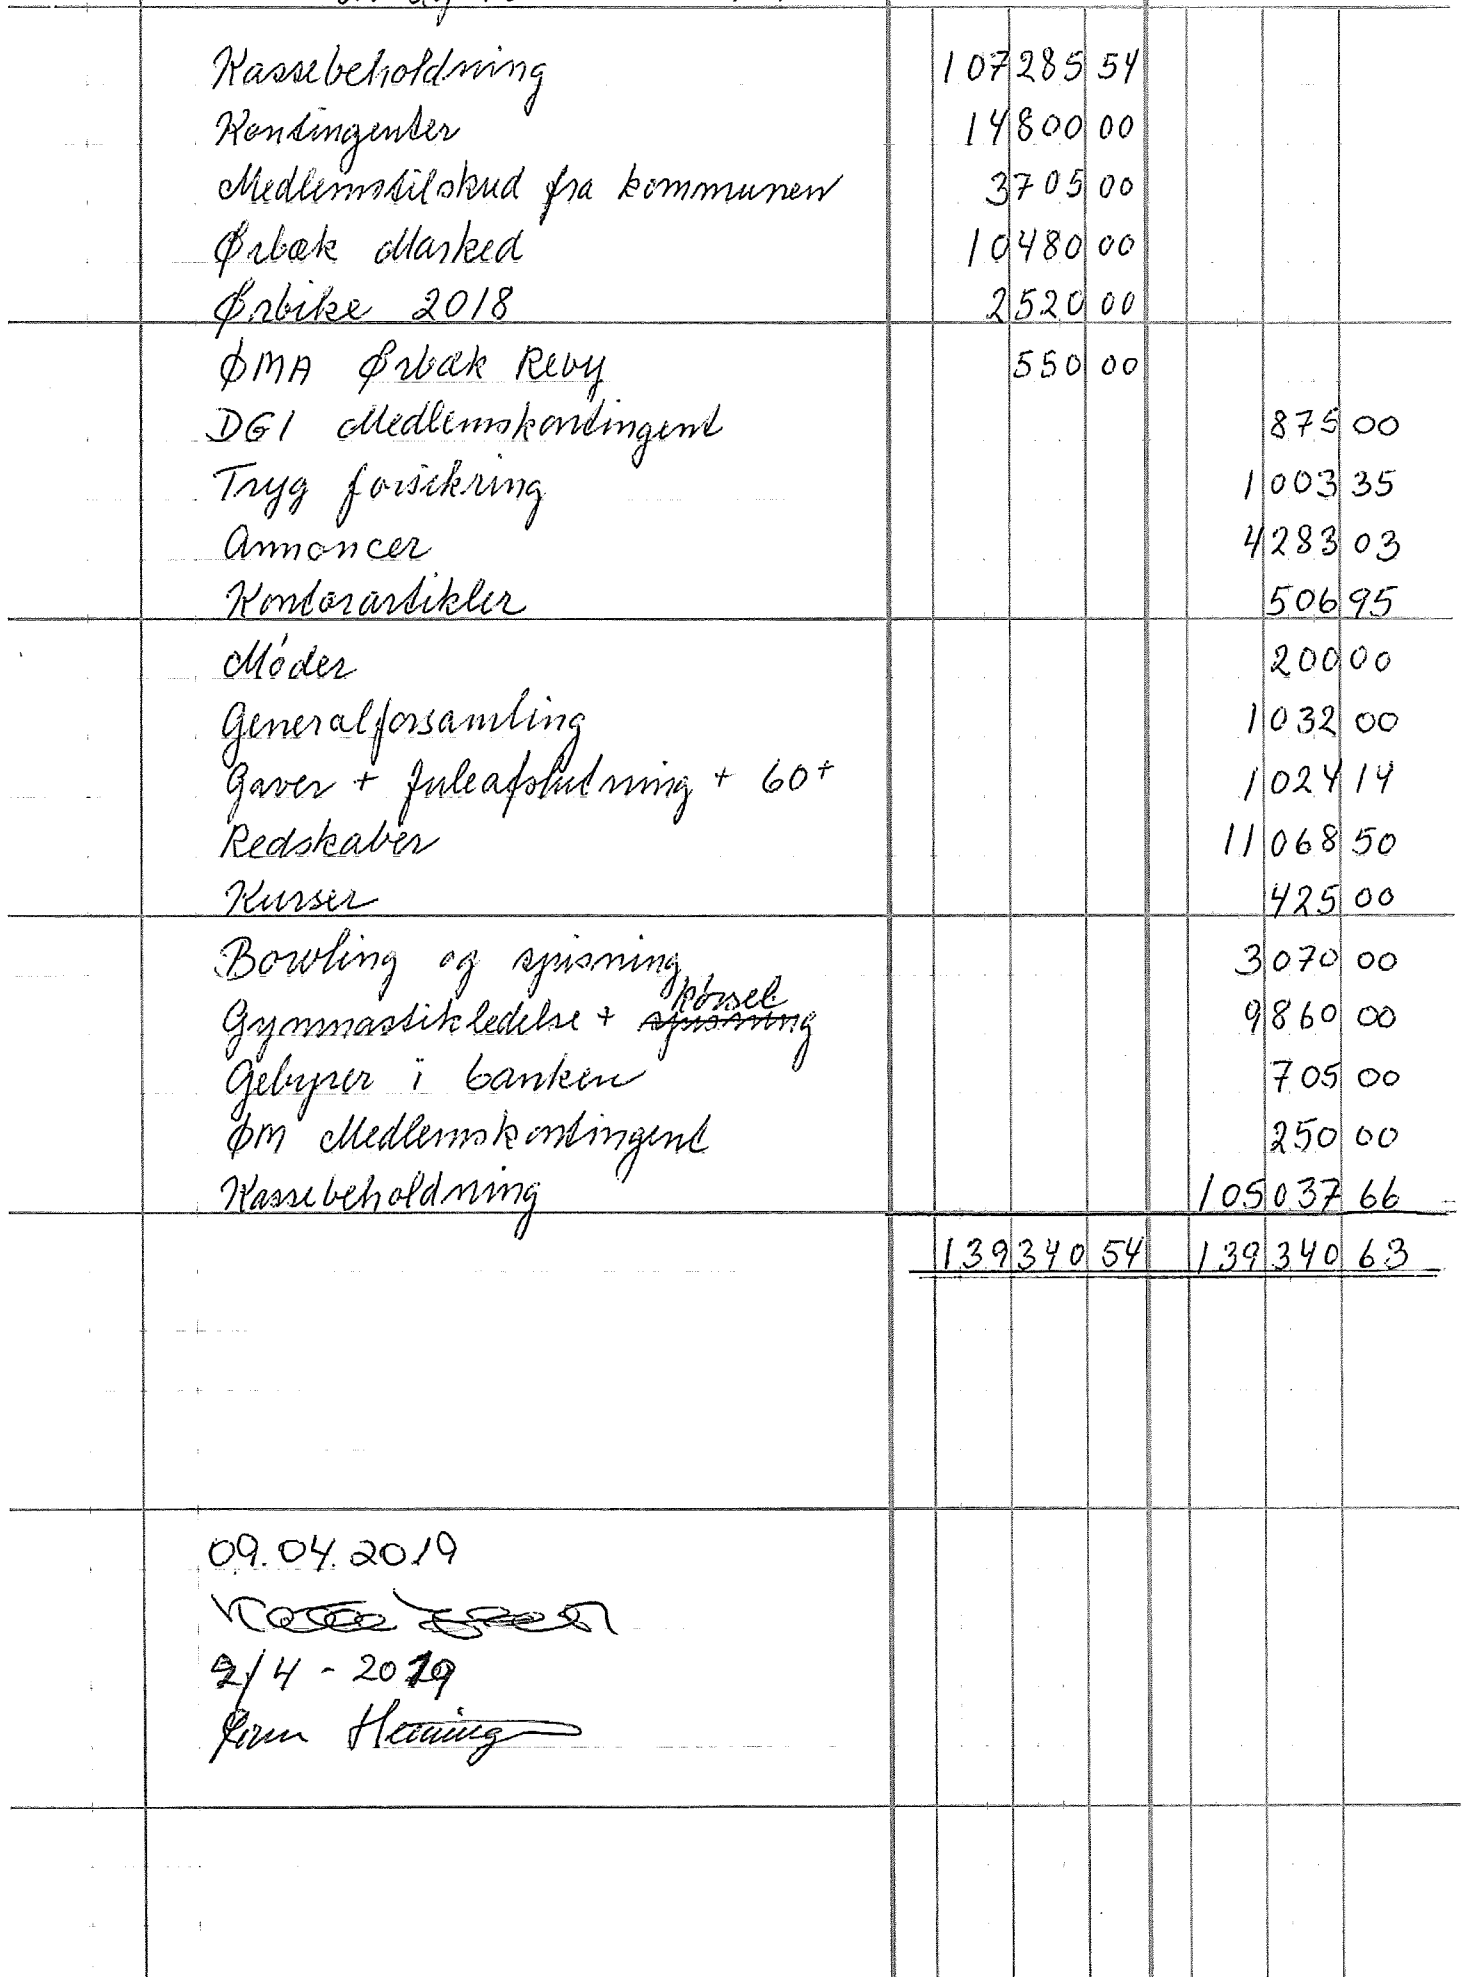 Kassebeholdning 107285 54
Kontingenter 14800 00
Medlemstilskud fra kommunen 3705 00
Ørbæk Marked 10480 00
Ørbike 2018 2520 00
ØMA Ørbæk Revy 550 00
DGI Medlemskontingent 875 00
Tryg forsikring 1003 35
Annoncer 4283 03
Kontorartikler 506 95
Møder 200 00
Generalforsamling 1032 00
Gaver + Juleafslutning + 60+ 1024 14
Redskaber 11068 50
Kurser 425 00
Bowling og spisning 3070 00
Gymnastikledelse + spisning kørsel 9860 00
Gebyrer i banken 705 00
ØM Medlemskontingent 250 00
Kassebeholdning 105037 66
139340 54 139340 63
09.04.2019
2/4 - 2019
Henning